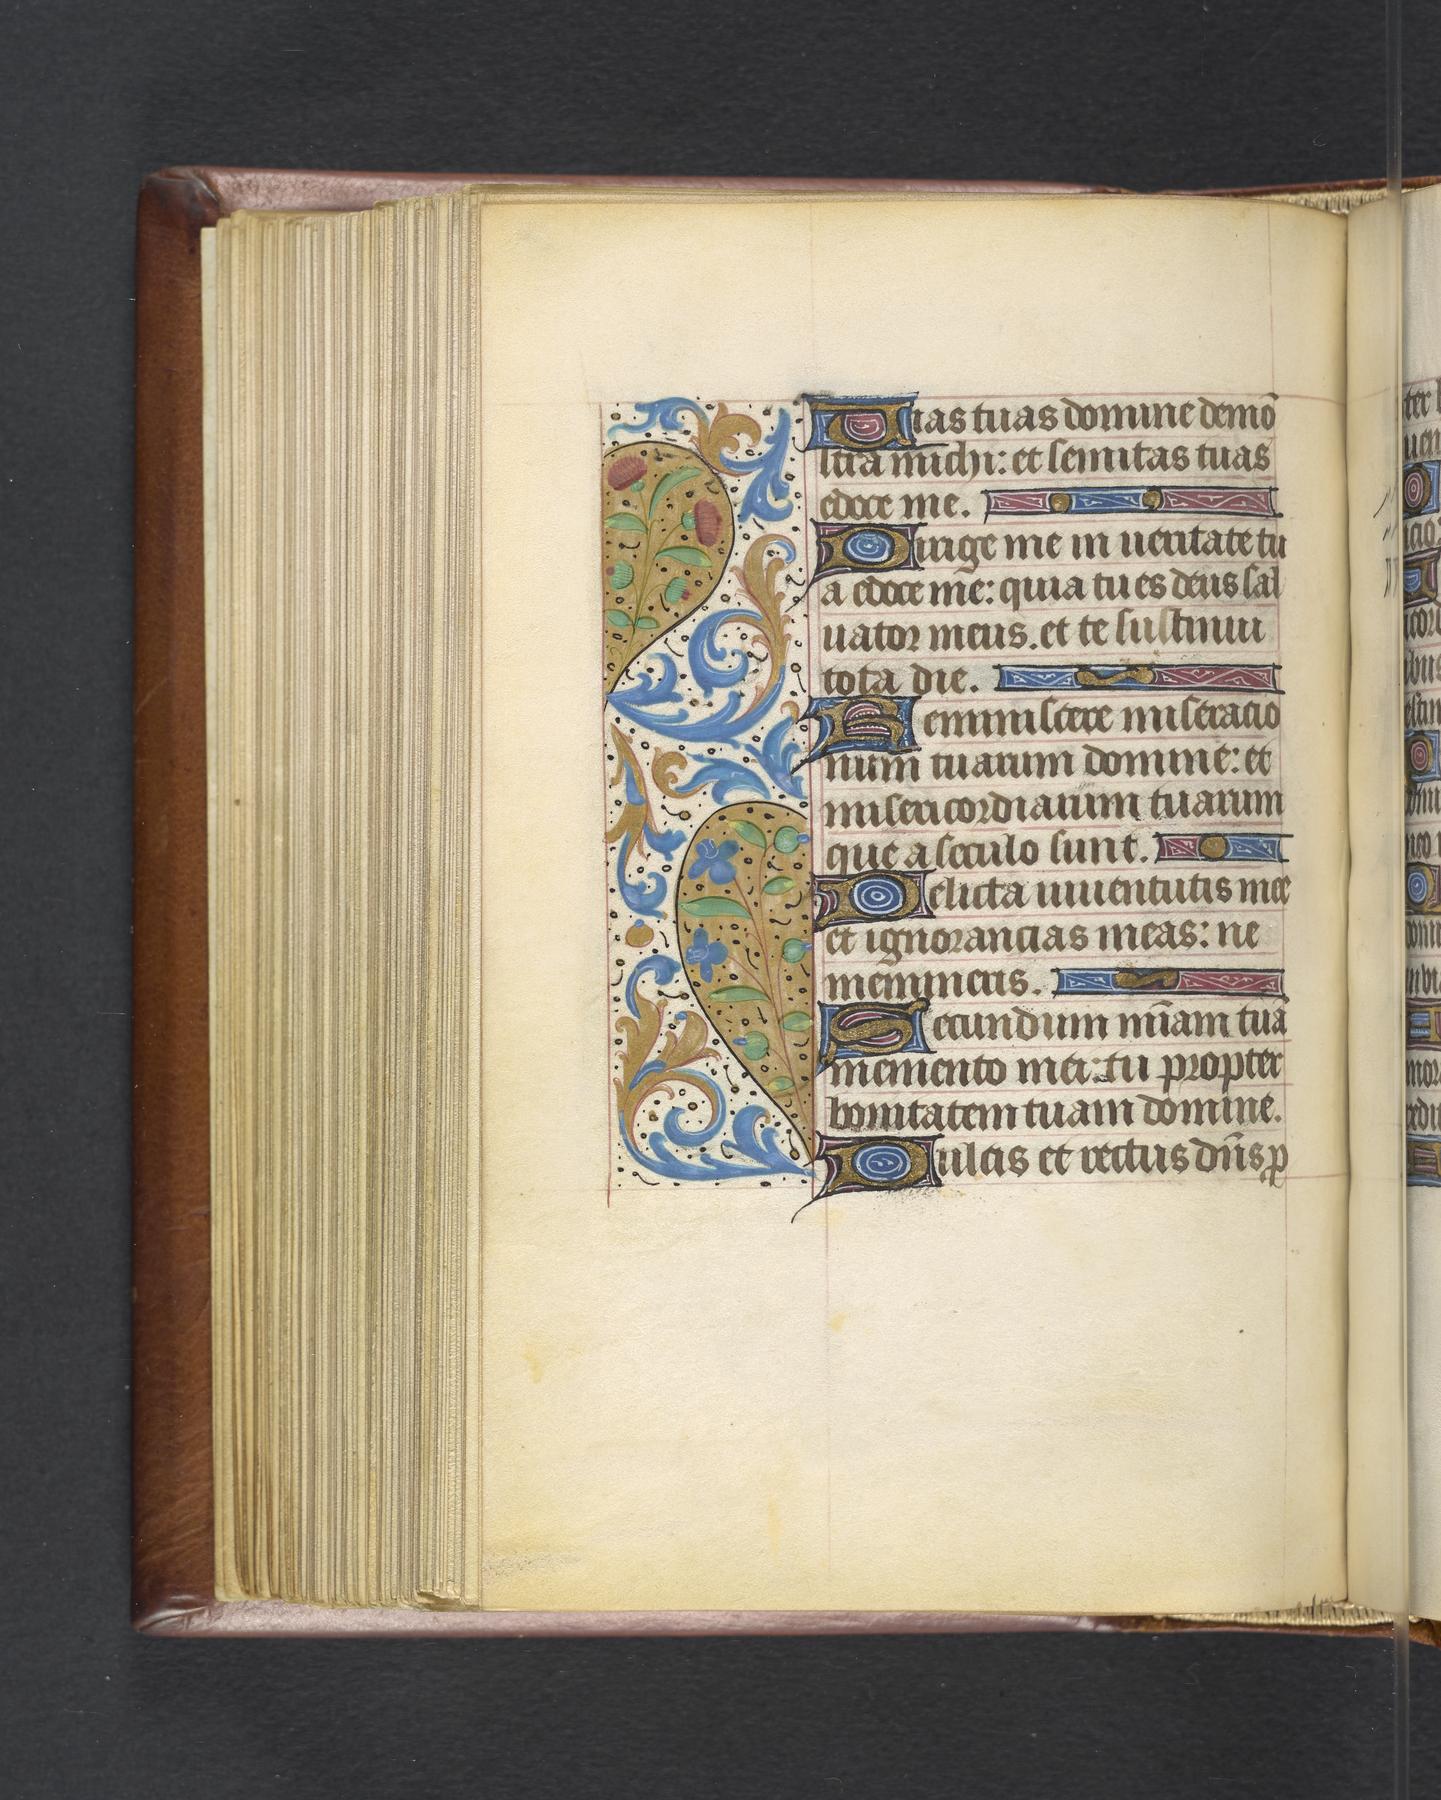 Uias tuas domine demō
stra michi: et semitas tuas
edoce me.
Dirige me in ueritate tu
a edoce me: quia tu es deus sal
uator meus. et te sustinui
tota die.
Reminiscere miseracio
num tuarum domine: et
misericordiarum tuarum
que a seculo sunt.
Delicta iuuentutis mee
et ignorancias meas: ne
memineris.
Secundum m̄iam tuā
memento mei: tu propter
bonitatem tuam domine.
Dulcis et rectus dn̄s ꝓ